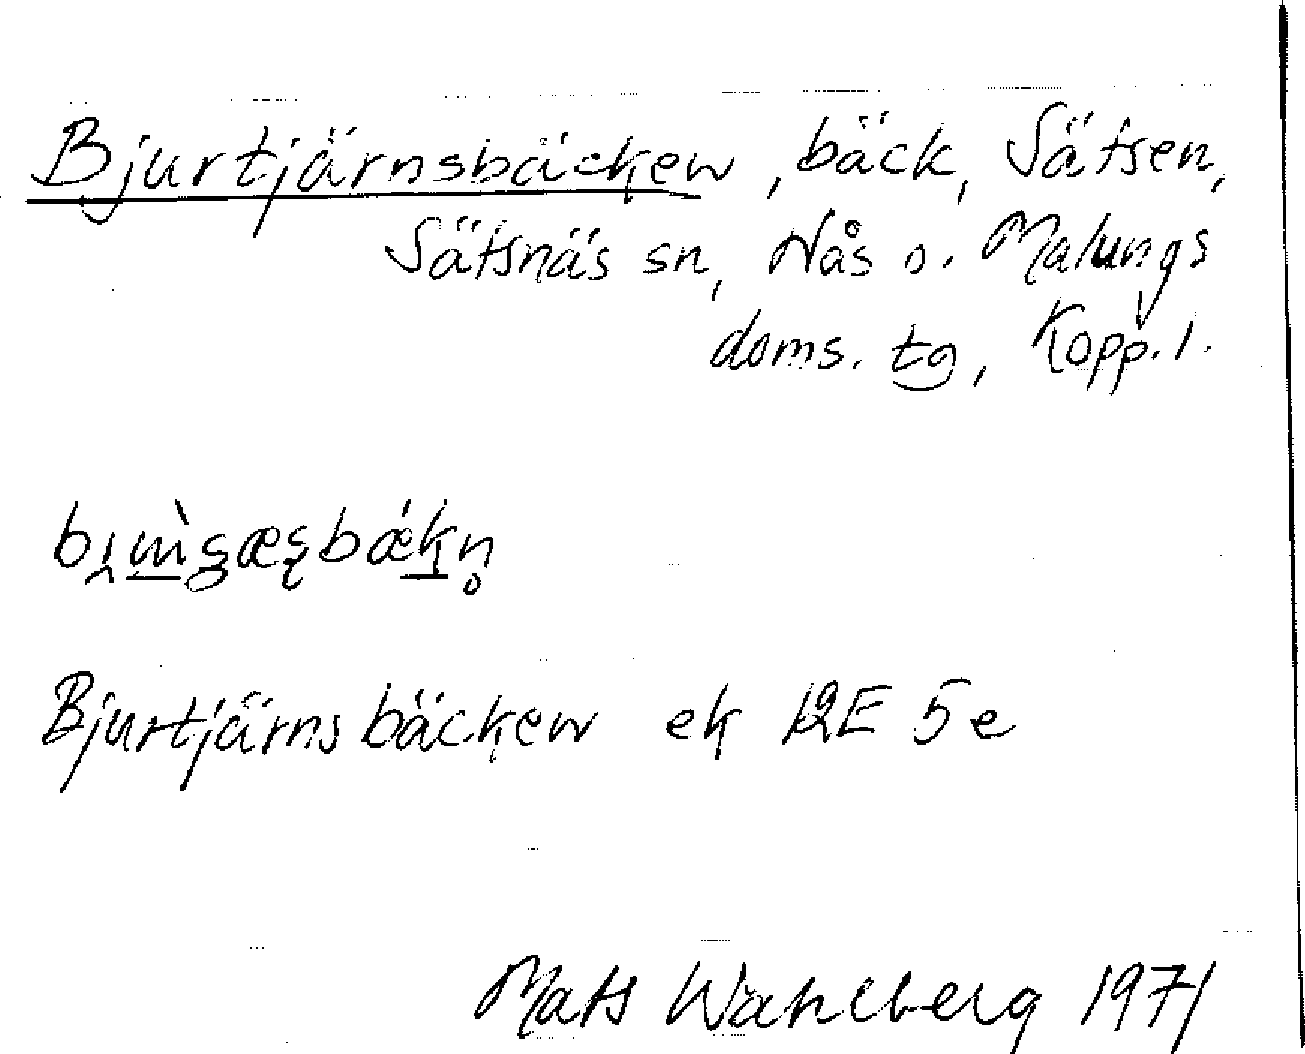 Bjurtjärnsbäcken, bäck, Sätsen,
Sätsnäs sn, Nås o. Malungs
doms. tg, Kopp. l.
Bjurtjärnsbäcken ek 12E 5e
Mats Wahlberg 1971